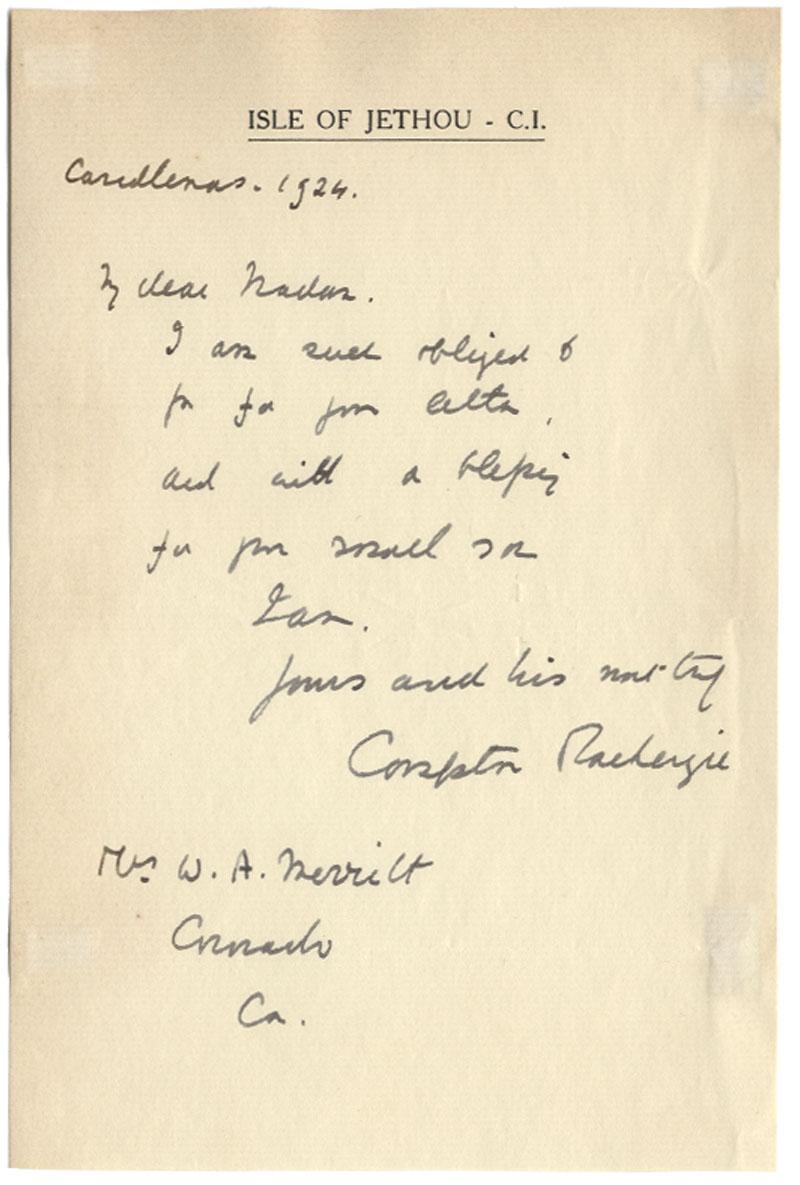 ISLE OF JETHOU - C.I.
Candlemas. 1924.
My dear Madam.
I am much obliged to
you for your letter,
and with a blessing
for your small son
Ian.
Yours and his most truly
Compton Mackenzie
Mrs W. A. Merritt
Coronado
Ca.